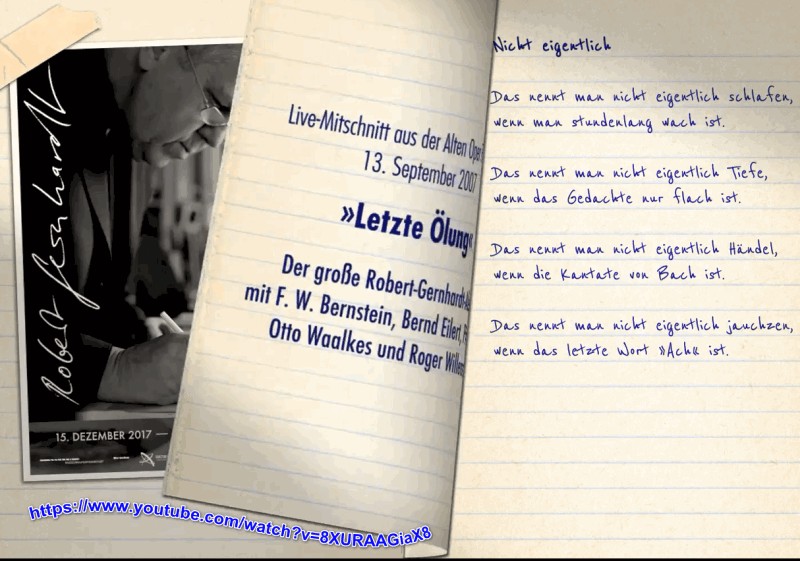 Robert Gernhardt
15. DEZEMBER 2017 —
Live-Mitschnitt aus der Alten Oper
13. September 2007
»Letzte Ölung«
Der große Robert-Gernhardt-
mit F. W. Bernstein, Bernd Eilert,
Otto Waalkes und Roger Willem
https://www.youtube.com/watch?v=8XURAAGiaX8
Nicht eigentlich
Das nennt man nicht eigentlich schlafen,
wenn man stundenlang wach ist.
Das nennt man nicht eigentlich Tiefe,
wenn das Gedachte nur flach ist.
Das nennt man nicht eigentlich Händel,
wenn die Kantate von Bach ist.
Das nennt man nicht eigentlich jauchzen,
wenn das letzte Wort »Ach« ist.